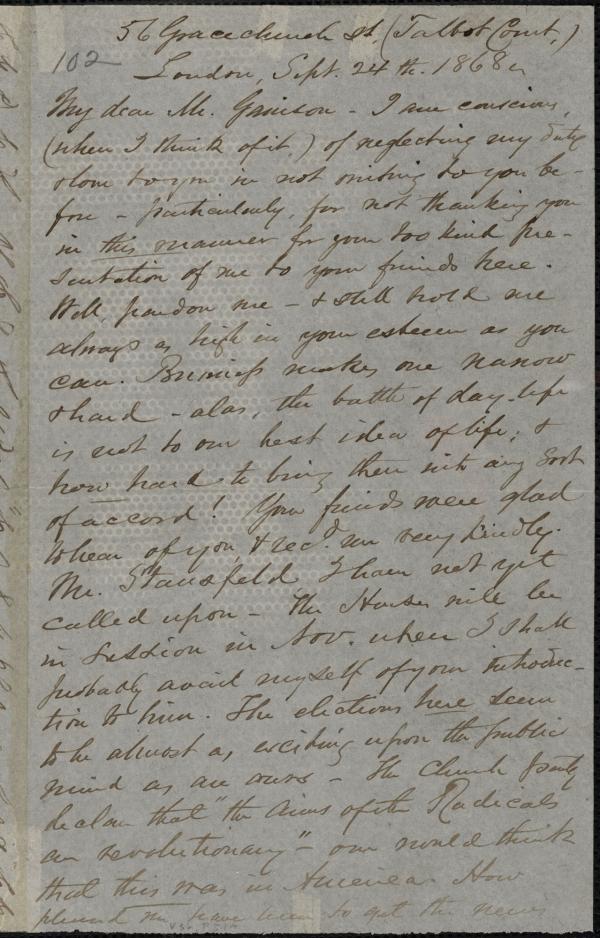 56 Gracechurch St. (Talbot Court.)
102
London, Sept. 24th. 1868.
My dear Mr. Garrison - I am conscious,
(when I think of it,) of neglecting my duty
to you in not writing to you be-
fore - particularly, for not thanking you
in this manner for your too kind pre-
sentation of me to your friends here.
Well, pardon me - & still hold me
always as high in your esteem as you
can. Business makes one narrow
& hard - alas, the battle of day-life
is not to our best idea of life; &
how hard to bring them into any sort
of accord! Your friends were glad
to hear of you, & rec'd. me very kindly.
Mr. Stansfeld I have not yet
called upon - The Houses will be
in Session in Nov. when I shall
probably avail myself of your introduc-
tion to him. The elections here seem
to be almost as exciting upon the public
mind as are ours - The Church party
declare that "the aims of the Radicals
are revolutionary" - one would think
that this was in America. How
pleased we have been to get the news